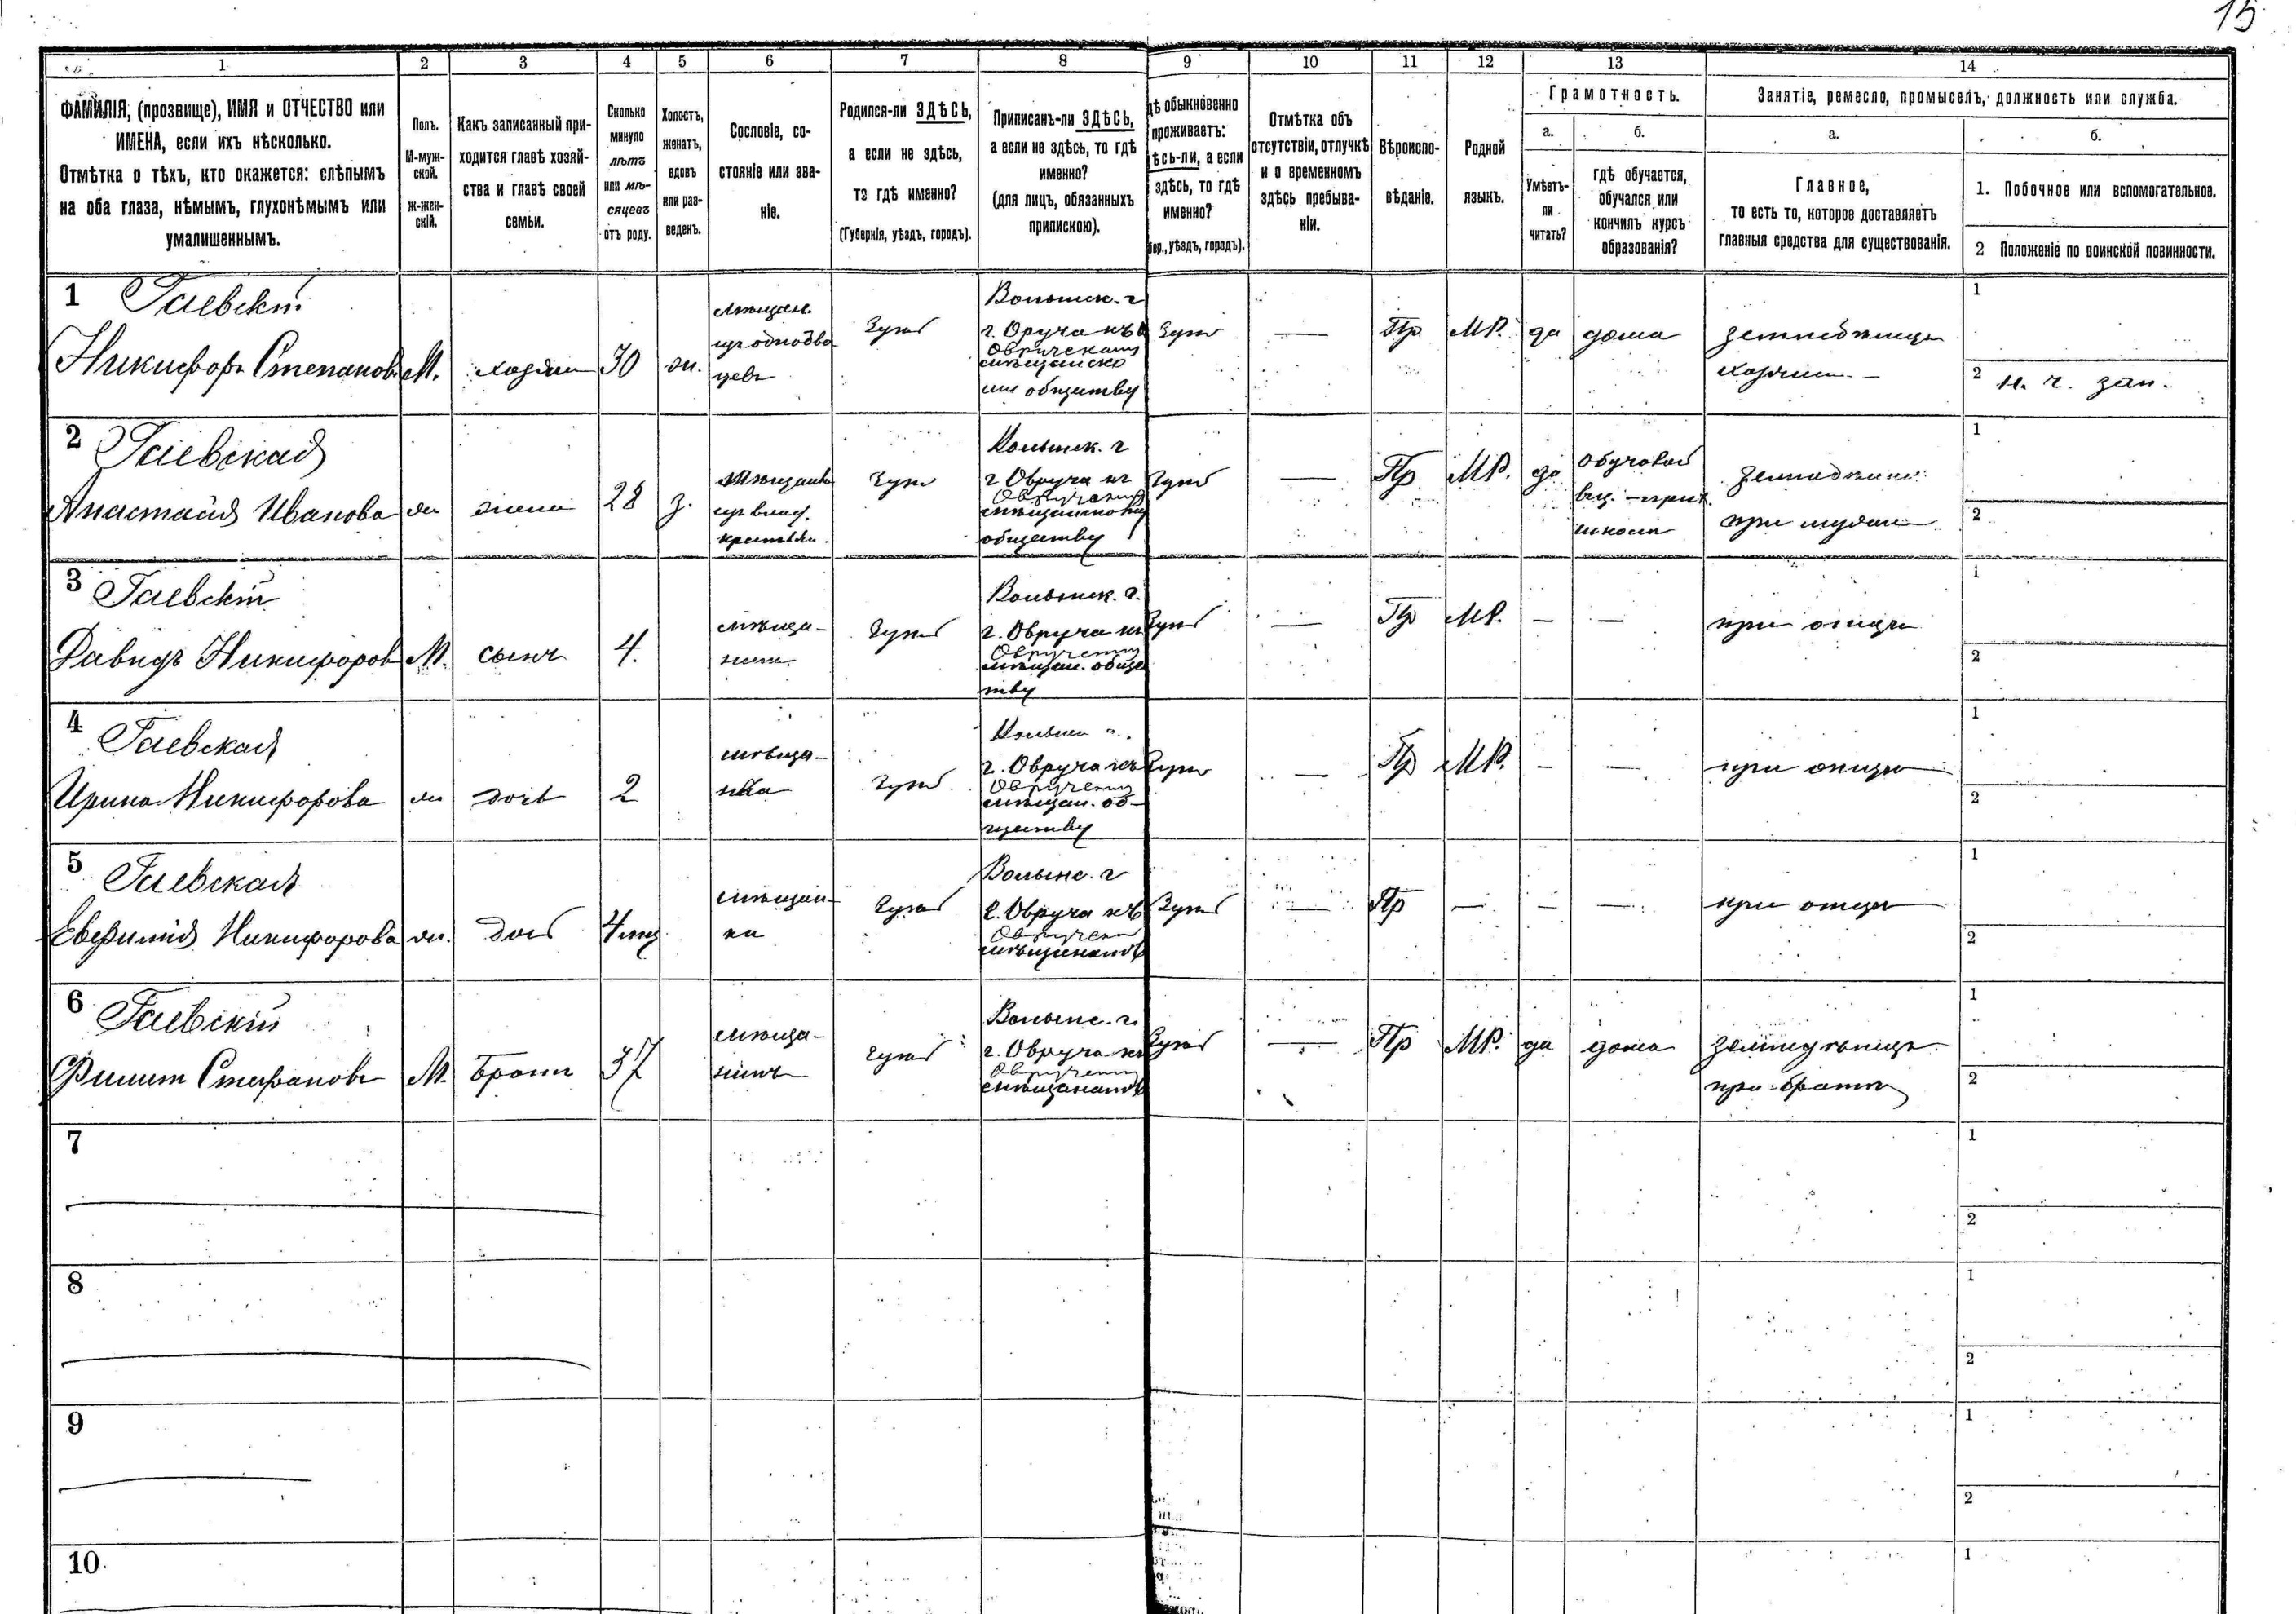 15
1 2 3 4 5 6 7 8 9 10 11 12 13 14
ФАМИЛІЯ, (прозвище), ИМЯ и ОТЧЕСТВО или
ИМЕНА, если ихъ нѣсколько.
Отмѣтка о тѣхъ, кто окажется: слѣпымъ
на оба глаза, нѣмымъ, глухонѣмымъ или
умалишеннымъ.
Полъ.
М-муж-
ской.
ж-жен-
скій.
Какъ записанный при-
ходится главѣ хозяй-
ства и главѣ своей
семьи.
Сколько
минуло
лѣтъ
или мѣ-
сяцевъ
отъ роду.
Холостъ,
женатъ,
вдовъ
или раз-
веденъ.
Сословіе, со-
стояніе или зва-
ніе.
Родился-ли ЗДѢСЬ,
а если не здѣсь,
то гдѣ именно?
(Губернія, уѣздъ, городъ).
Приписанъ-ли ЗДѢСЬ,
а если не здѣсь, то гдѣ
именно?
(для лицъ, обязанныхъ
припискою).
дѣ обыкновенно
проживаетъ:
ѣсь-ли, а если
здѣсь, то гдѣ
именно?
бер., уѣздъ, городъ).
Отмѣтка объ
отсутствіи, отлучкѣ
и о временномъ
здѣсь пребыва-
ніи.
Вѣроиспо-
вѣданіе.
Родной
языкъ.
Грамотность.
а.
Умѣетъ-
ли
читать?
б.
гдѣ обучается,
обучался или
кончилъ курсъ
образованія?
Занятіе, ремесло, промыселъ, должность или служба.
а.
Главное,
то есть то, которое доставляетъ
главныя средства для существованія.
б.
1. Побочное или вспомогательное.
2 Положеніе по воинской повинности.
1 Гаевскій
Никифоръ Степановъ М. хозяин 30 ж.
мѣщан.
изъ однодво
рцевъ
здѣсь
Волынск. г
г. Овруча къ
Овручскому
мѣщанско
му обществу
здѣсь — Пр МР. да дома
земледѣлецъ
хозяин —
1
2 н. ч. зап.
2 Гаевская
Анастасія Иванова ж жена 28 з.
мѣщанка
изъ
крестьян.
здѣсь
Волынск. г
г Овруча къ
Овручскому
мѣщанскому
обществу
здѣсь — Пр МР. да
школѣ
при мужѣ
1
2
3 Гаевскій
Давидъ Никифоров М. сынъ 4.
мѣща-
нин
здѣсь
Волынск. г.
г. Овруча къ
Овручскому
мѣщан. обще
тву
здѣсь — Пр МР. — —
при отцѣ
1
2
4 Гаевская
Ирина Никифорова ж дочь 2
мѣща-
нка
здѣсь
Волын г.
г. Овруча къ
Овручскому
мѣщан. об-
ществу
здѣсь — Пр МР. — —
при отцѣ
1
2
5 Гаевская
Евфимія Никифорова ж. дочь 4 мц
мѣщан-
ка
здѣсь
Волынс. г
г. Овруча къ
Овручским
мѣщанамъ
здѣсь — Пр — — —
при отцѣ
1
2
6 Гаевскій
Филип Стефановъ М. Братъ 37
мѣща-
нинъ
здѣсь
Волынс. г.
г. Овруча къ
Овручским
мѣщанамъ
здѣсь — Пр МР. да дома
земледѣлецъ
при братѣ
1
2
7
1
2
8
1
2
9
1
2
10.
1